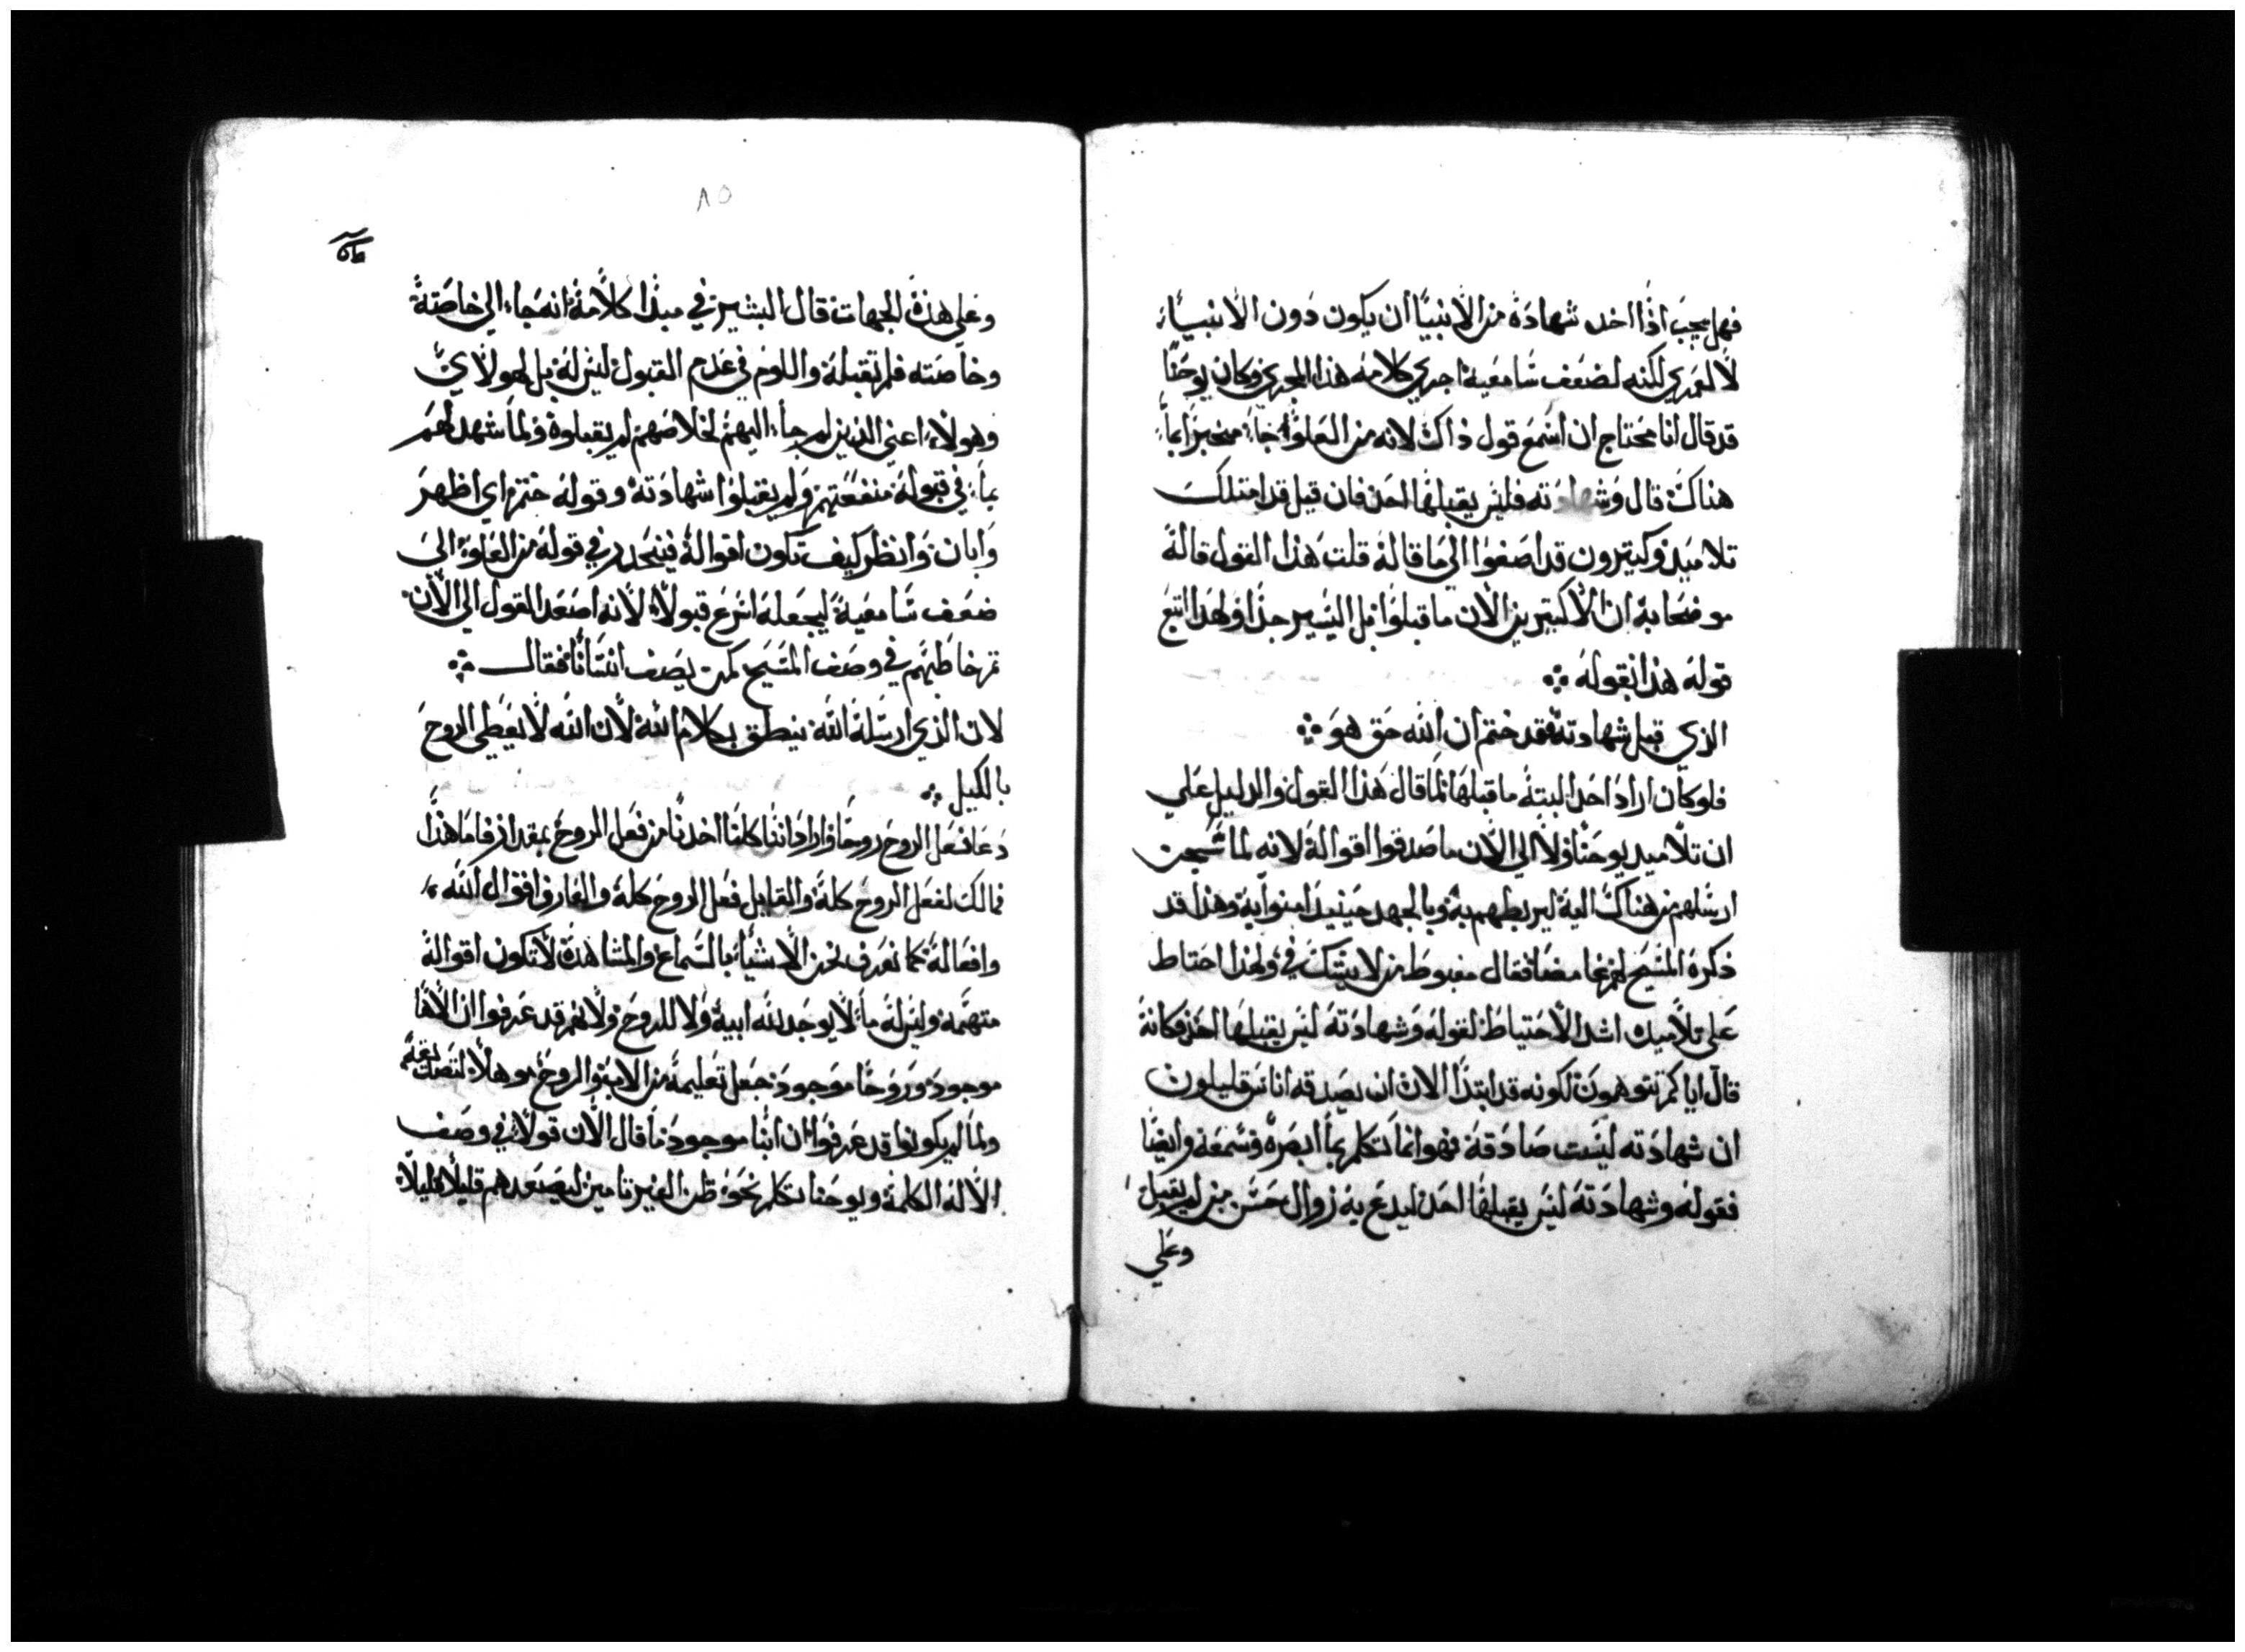 فهل يجب اذا اخد شهادة من الانبيا ان يكون دون الانبياء
لا لعمري لكنه لضعف سامعيه اجري كلامه هذا المجري وكان يوحنا
قد قال انا محتاج ان اسمع قول ذاك لانه من العلو جاء مخبرا بما
هناك قال وشهادته فليس يقبلها احد فان قيل قد امتلك
تلاميد وكتيرون قد اصغوا الي ما قاله قلت هذا القول قاله
موضحا به ان الاكتيرين الان ما قبلوا بل اليسير جدا ولهدا اتبع
قوله هدا بقوله ∴
الذي قبل شهادته فقد ختم ان الله حق هو ∴
فلو كان اراد احد البتة ما قبلها لما قال هذا القول والدليل علي
ان تلاميد يوحنا ولا الي الان ما صدقوا اقواله لانه لما سجن
ارسلهم من هناك اليه ليربطهم به وبالجهد حينيد امنوا به وهدا قد
ذكره المسيح لهم غامضا فقال مغبوط من لا يشك في ولهذا احتاط
علي تلاميده اشد الاحتياط لقوله وشهادته ليس يقبلها احد فكانه
قال اياكم تتوهمون لكونه قد ابتدا الان ان يصدقه اناس قليلون
ان شهادته ليست صادقة فهو انما تكلم بما ابصره وسمعه وايضا
فقوله وشهادته ليس يقبلها احد ليدع به زوال حس من لم يقبل
وعلي
٨٥
وعلي هذه الجهات قال البشير في مبدا كلامه انه جاء الي خاصته
وخاصته فلم تقبله واللوم في عدم القبول ليس له بل لهولاي
وهولاء اعني الذين لم جاء اليهم لخلاصهم لم يقبلوه ولما شهد لهم
بما في قبوله منفعتهم ولم يقبلوا شهادته وقوله ختم اي اظهر
وابان وانظر كيف تكون اقواله فينحدر في قوله من العلو الي
ضعف سامعيه ليجعله اسرع قبولا لانه اصعد القول الي الان
ثم خاطبهم في وصف المسيح كمن يصف انسانا فقال ∴
لان الذي ارسله الله ينطق بكلام الله لان الله لا يعطي الروح
بالكيل ∴
دعا فعل الروح روحا واراد اننا كلنا اخدنا من فعل الروح بمقدار فاما هذا
فمالك لفعل الروح كله والقابل فعل الروح كله والعارف اقوال الله
وافعاله كما نعرف نحن الاشياء بالسماع والمشاهدة لا تكون اقواله
متهمة وليس له ما لا يوجد لله ابيه ولا للروح ولانهم قد عرفوا ان الاها
موجود وروحا موجود جعل تعليمه من الاب والروح موهلا لتصديقهم
ولما لم يكونوا قد عرفوا ان ابنا موجودا ما قال الان قولا في وصف
الاله الكلمة ويوحنا تكلم نحو ظن الغير تامين ليصعدهم قليلا قليلا